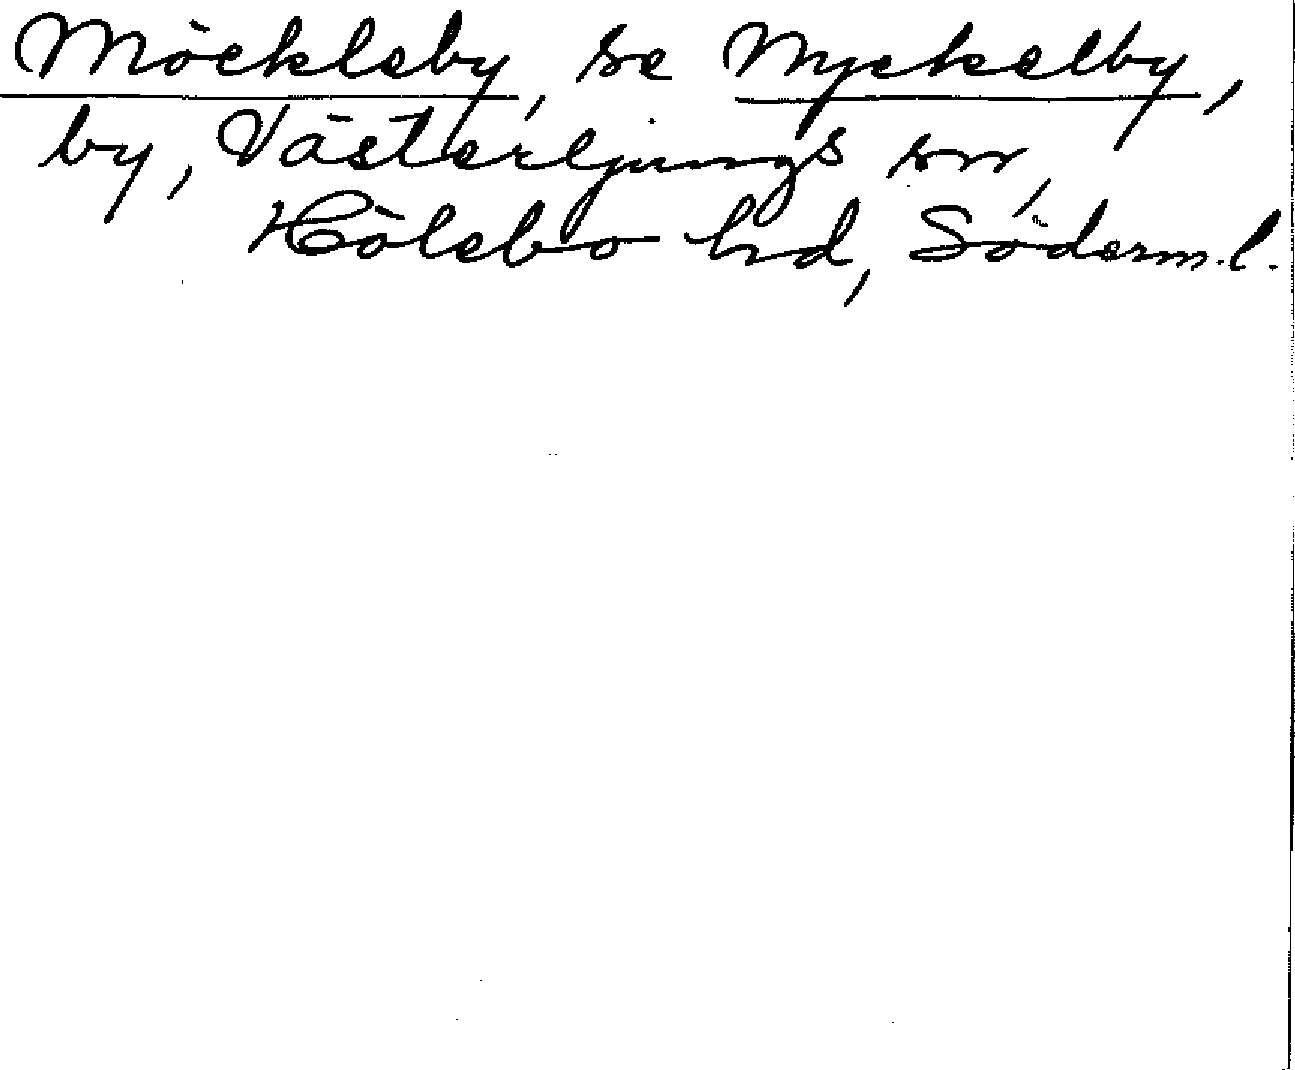 Möckleby, se Myckelby,
by, Västerljungs sn,
Hölebo hd, Söderm.l.